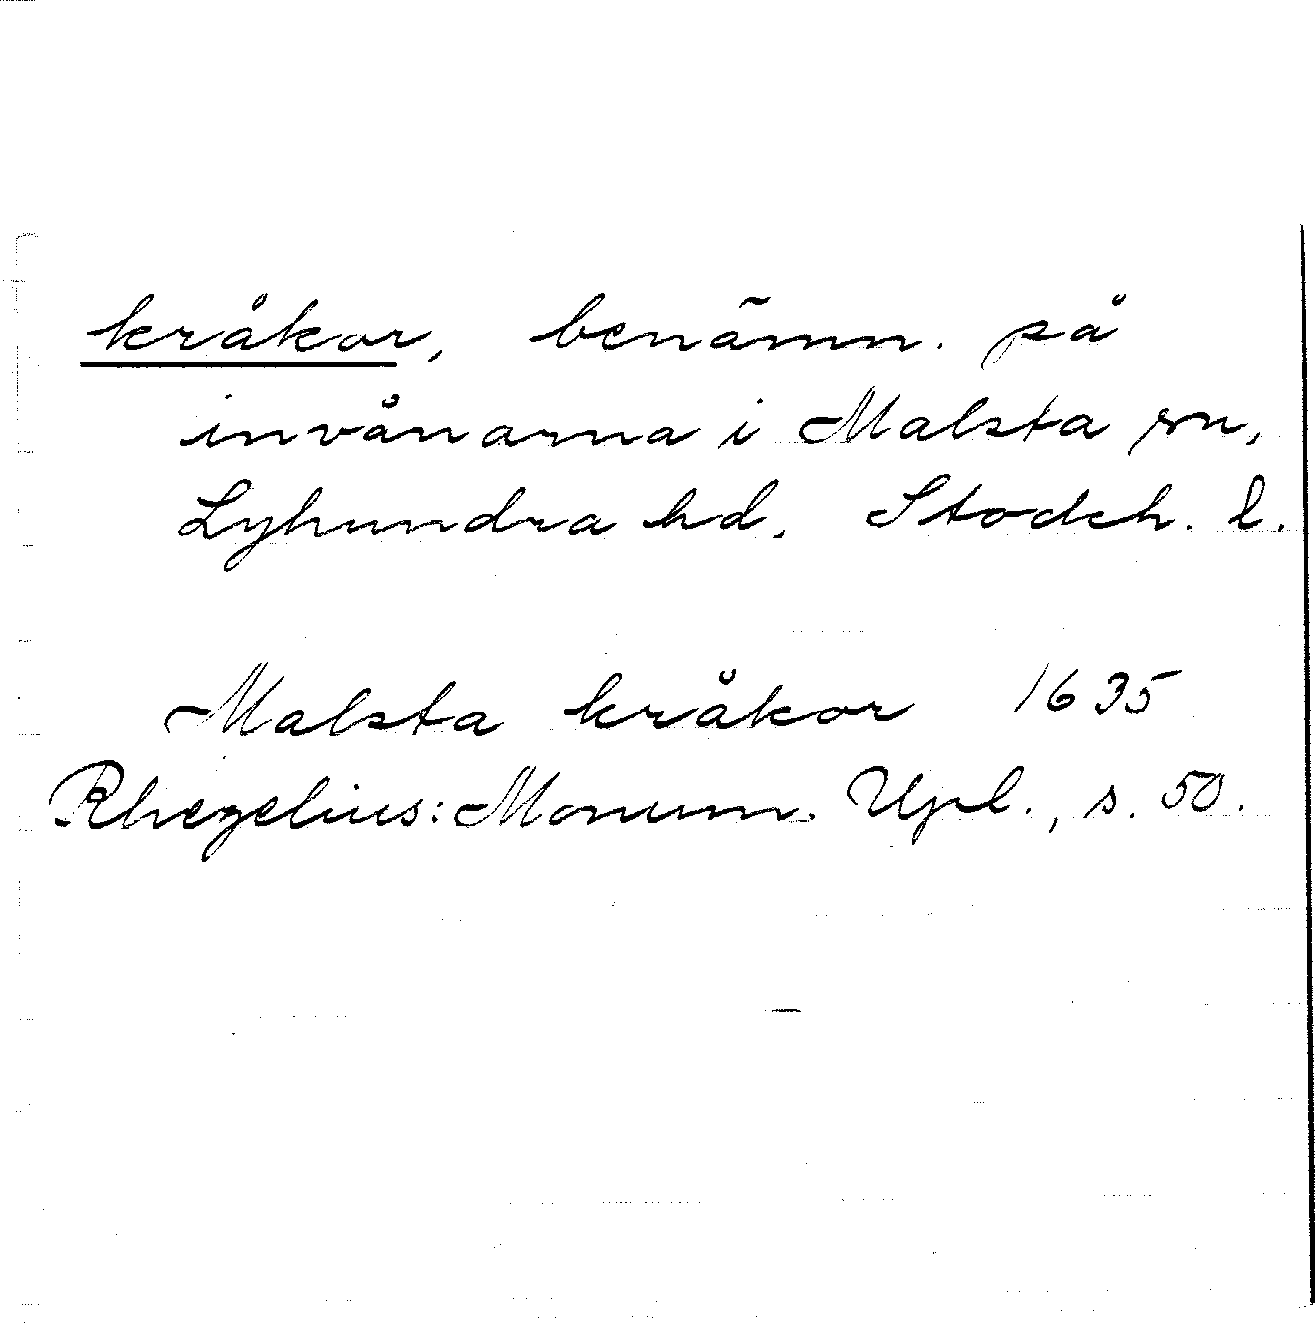 kråkor, benämn. på
invånarna i Malsta sn,
Lyhundra hd, Stockh. l.
Malsta kråkor 1635
Rhezelius: Monum. Upl., s. 50.